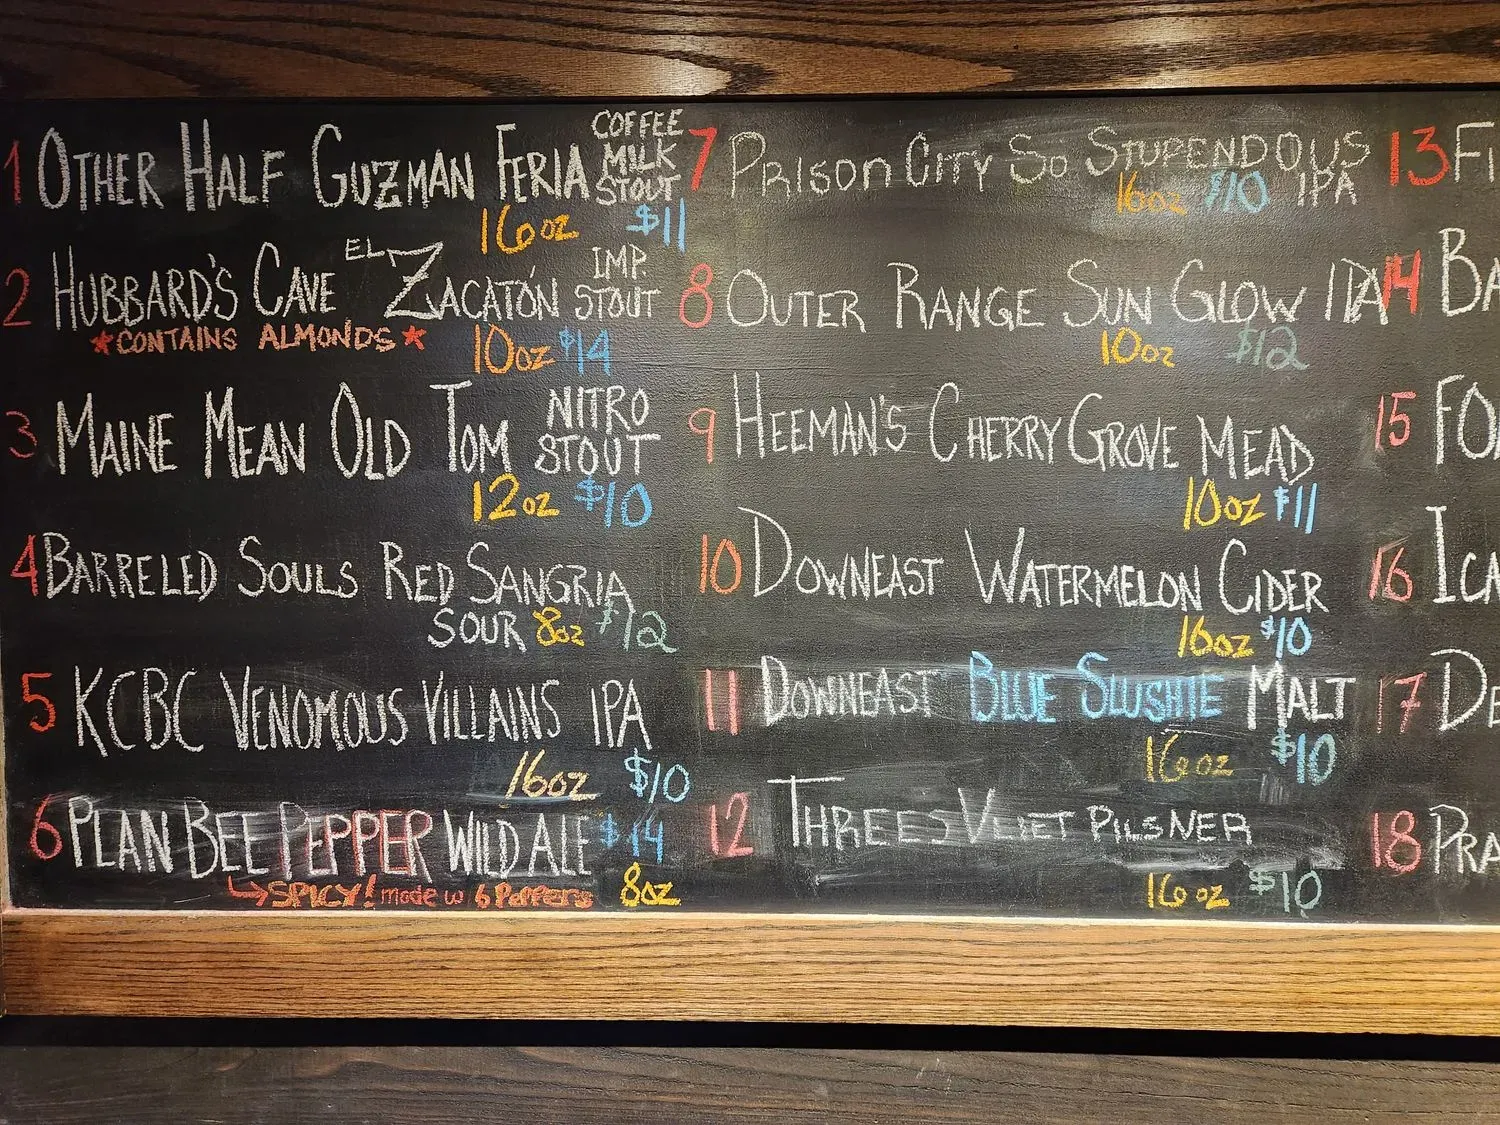 1 OTHER HALF GUZMAN FERIA COFFEE MILK STOUT
16oz $11
2 HUBBARD'S CAVE EL ZACATÓN IMP. STOUT
*CONTAINS ALMONDS*
10oz $14
3 MAINE MEAN OLD TOM NITRO STOUT
12oz $10
4 BARRELED SOULS RED SANGRIA
SOUR 8oz $12
5 KCBC VENOMOUS VILLAINS IPA
16oz $10
6 PLAN BEE PEPPER WILD ALE $14
↳SPICY! made w 6 Peppers 8oz
7 PRISON CITY SO STUPENDOUS
16oz $10 IPA
8 OUTER RANGE SUN GLOW IPA
10oz $12
9 HEEMAN'S CHERRY GROVE MEAD
10oz $11
10 DOWNEAST WATERMELON CIDER
16oz $10
11 DOWNEAST BLUE SLUSHIE MALT
16oz $10
12 THREES VLIET PILSNER
16oz $10
13 FI
14 BA
15 FO
16 ICA
17 DE
18 PRA